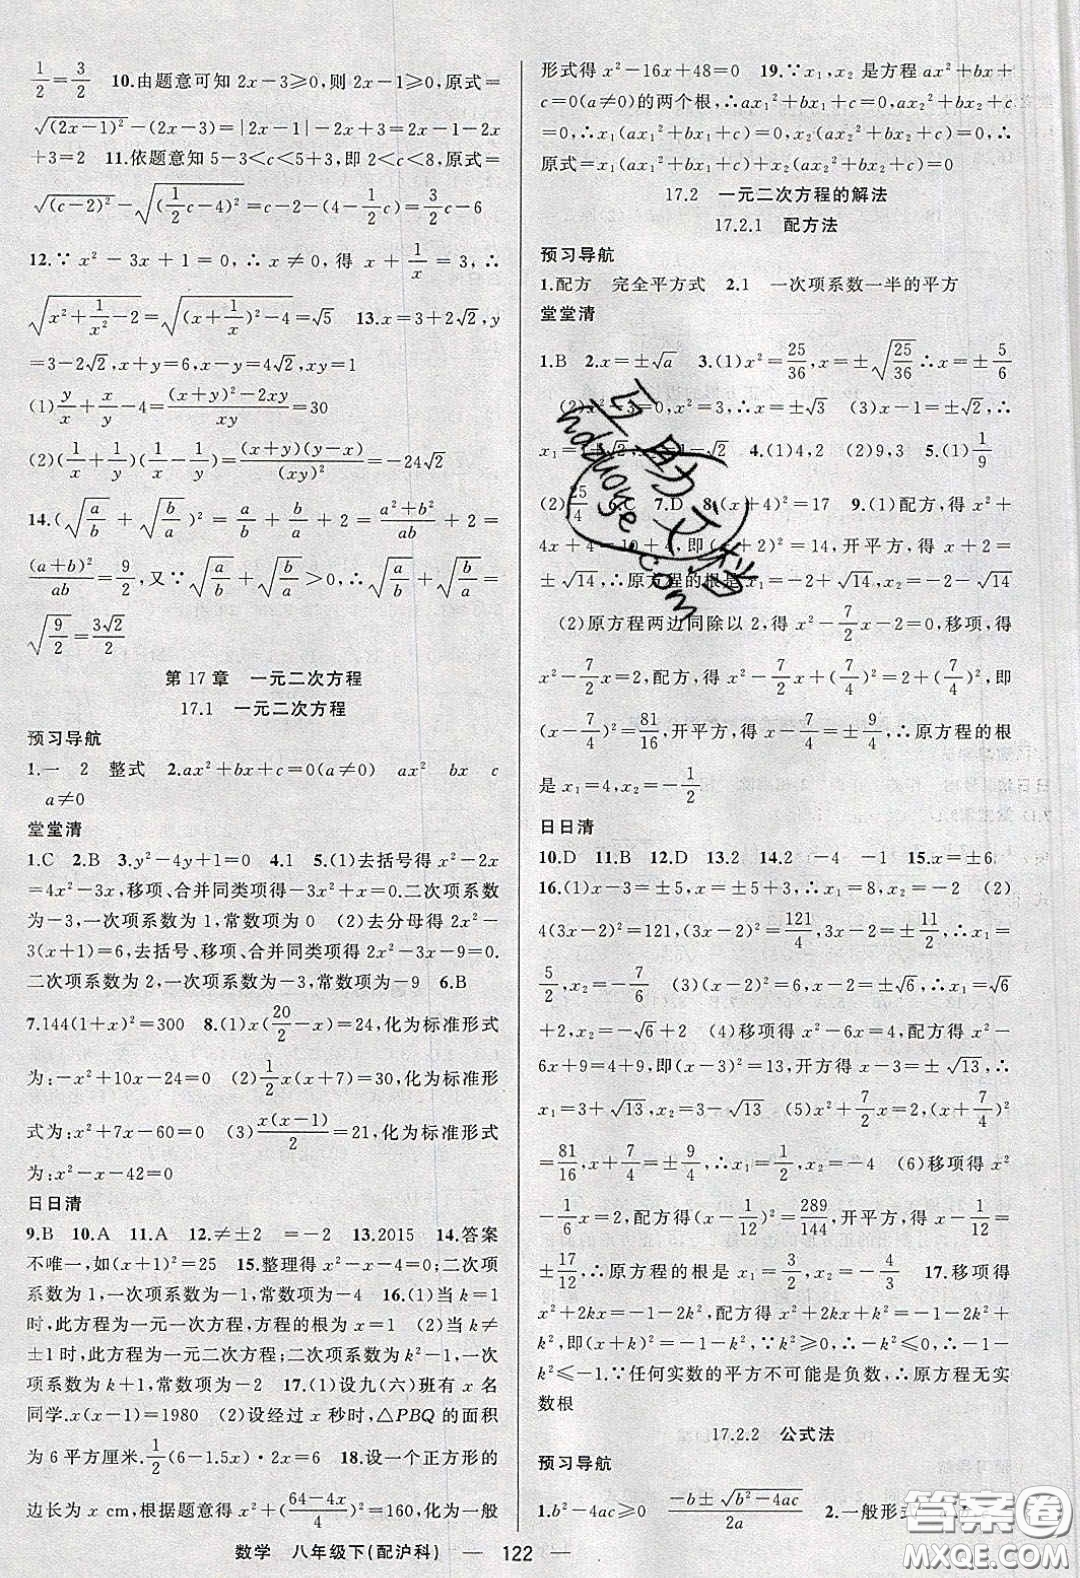 1/2=3/2 10.由题意可知2x-3≥0,则2x-1≥0,原式=
√(2x-1)²-(2x-3)=|2x-1|-2x+3=2x-1-2x
+3=2 11.依题意知5-3<c<5+3,即2<c<8,原式=
√(c-2)²-√(1/2c-4)²=c-2-(4-1/2c)=3/2c-6
12.∵x²-3x+1=0,∴x≠0,得x+1/x=3,∴
√(x²+1/x²-2)=√((x+1/x)²-4)=√5 13.x=3+2√2,y
=3-2√2,x+y=6,x-y=4√2,xy=1
(1)y/x+x/y-4=((x+y)²-2xy)/xy=30
(2)(1/x+1/y)(1/x-1/y)=(x+y)(y-x)/(xy)²=-24√2
14.(√(a/b)+√(b/a))²=a/b+b/a+2=(a²+b²)/ab+2=
(a+b)²/ab=9/2,又∵√(a/b)+√(b/a)>0,∴√(a/b)+√(b/a)=
√(9/2)=3√2/2
第17章 一元二次方程
17.1 一元二次方程
预习导航
1.一 2 整式 2.ax²+bx+c=0(a≠0) ax² bx c
a≠0
堂堂清
1.C 2.B 3.y²-4y+1=0 4.1 5.(1)去括号得x²-2x
=4x²-3x,移项、合并同类项得-3x²+x=0.二次项系数
为-3,一次项系数为1,常数项为0 (2)去分母得2x²-
3(x+1)=6,去括号、移项、合并同类项得2x²-3x-9=0.
二次项系数为2,一次项系数为-3,常数项为-9 6.B
7.144(1+x)²=300 8.(1)x(20/2-x)=24,化为标准形式
为:-x²+10x-24=0 (2)1/2x(x+7)=30,化为标准形
式为:x²+7x-60=0 (3)x(x-1)/2=21,化为标准形式
为:x²-x-42=0
日日清
9.B 10.A 11.A 12.≠±2 =-2 13.2015 14.答案
不唯一,如(x+1)²=25 15.整理得x²-x-4=0;二次项
系数为1,一次项系数为-1,常数项为-4 16.(1)当k=1
时,此方程为一元一次方程,方程的根为x=1 (2)当k≠
±1时,此方程为一元二次方程;二次项系数为k²-1,一次
项系数为k+1,常数项为-2 17.(1)设九(六)班有x名
同学.x(x-1)=1980 (2)设经过x秒时,△PBQ的面积
为6平方厘米.1/2(6-x)·2x=6 18.设一个正方形的
边长为x cm,根据题意得x²+((64-4x)/4)²=160,化为一般
形式得x²-16x+48=0 19.∵x₁,x₂是方程ax²+bx+
c=0(a≠0)的两个根,∴ax₁²+bx₁+c=0,ax₂²+bx₂+c
=0,∴x₁(ax₁²+bx₁+c)=0,x₂(ax₂²+bx₂+c)=0,∴
原式=x₁(ax₁²+bx₁+c)+x₂(ax₂²+bx₂+c)=0
17.2 一元二次方程的解法
17.2.1 配方法
预习导航
1.配方 完全平方式 2.1 一次项系数一半的平方
堂堂清
1.B 2.x=±√a 3.(1)x²=25/36,x=±√(25/36)∴x=±5/6
(2)x²-3=0,x²=3,∴x=±√3 (3)x-1=±√2,∴
x₁=1+√2,x₂=1-√2 4.(1)4,2 (2)9,3 5.(1)1/9
(2)25/4 6.C 7.D 8.(x+4)²=17 9.(1)配方,得x²+
4x+4=10+4,即(x+2)²=14,开平方,得x+2=
±√14,∴原方程的根是x₁=-2+√14,x₂=-2-√14
(2)原方程两边同除以2,得x²-7/2x-2=0,移项,得
x²-7/2x=2,配方,得x²-7/2x+(7/4)²=2+(7/4)²,即
(x-7/4)²=81/16,开平方,得x-7/4=±9/4,∴原方程的根
是x₁=4,x₂=-1/2
日日清
10.D 11.B 12.D 13.2 14.2 -4 -1 15.x=±6
16.(1)x-3=±5,x=±5+3,∴x₁=8,x₂=-2 (2)
4(3x-2)²=121,(3x-2)²=121/4,3x-2=±11/2,∴x₁=
5/2,x₂=-7/6 (3)(x-2)²=6,x-2=±√6,∴x₁=√6
+2,x₂=-√6+2 (4)移项得x²-6x=4,配方得x²-
6x+9=4+9,即(x-3)²=13,开方得x-3=±√13,∴
x₁=3+√13,x₂=3-√13 (5)x²+7/2x=2,(x+7/4)²
=81/16,x+7/4=±9/4,∴x₁=1/2,x₂=-4 (6)移项得x²
-1/6x=2,配方得(x-1/12)²=289/144,开平方,得x-1/12=
±17/12,∴原方程的根是x₁=3/2,x₂=-4/3 17.移项得
x²+2kx=-1-k²,配方得x²+2kx+k²=-1-2k²+
k²,即(x+k)²=-1-k²,∵k²≥0,∴-k²≤0,∴-1-
k²≤-1.∵任何实数的平方不可能是负数,∴原方程无实
数根
17.2.2 公式法
预习导航
1.b²-4ac≥0 (-b±√(b²-4ac))/2a 2.一般形式
数学 八年级下(配沪科) — 122 —
互助文档
hdzuoye.com
答案圈
MXQE.COM